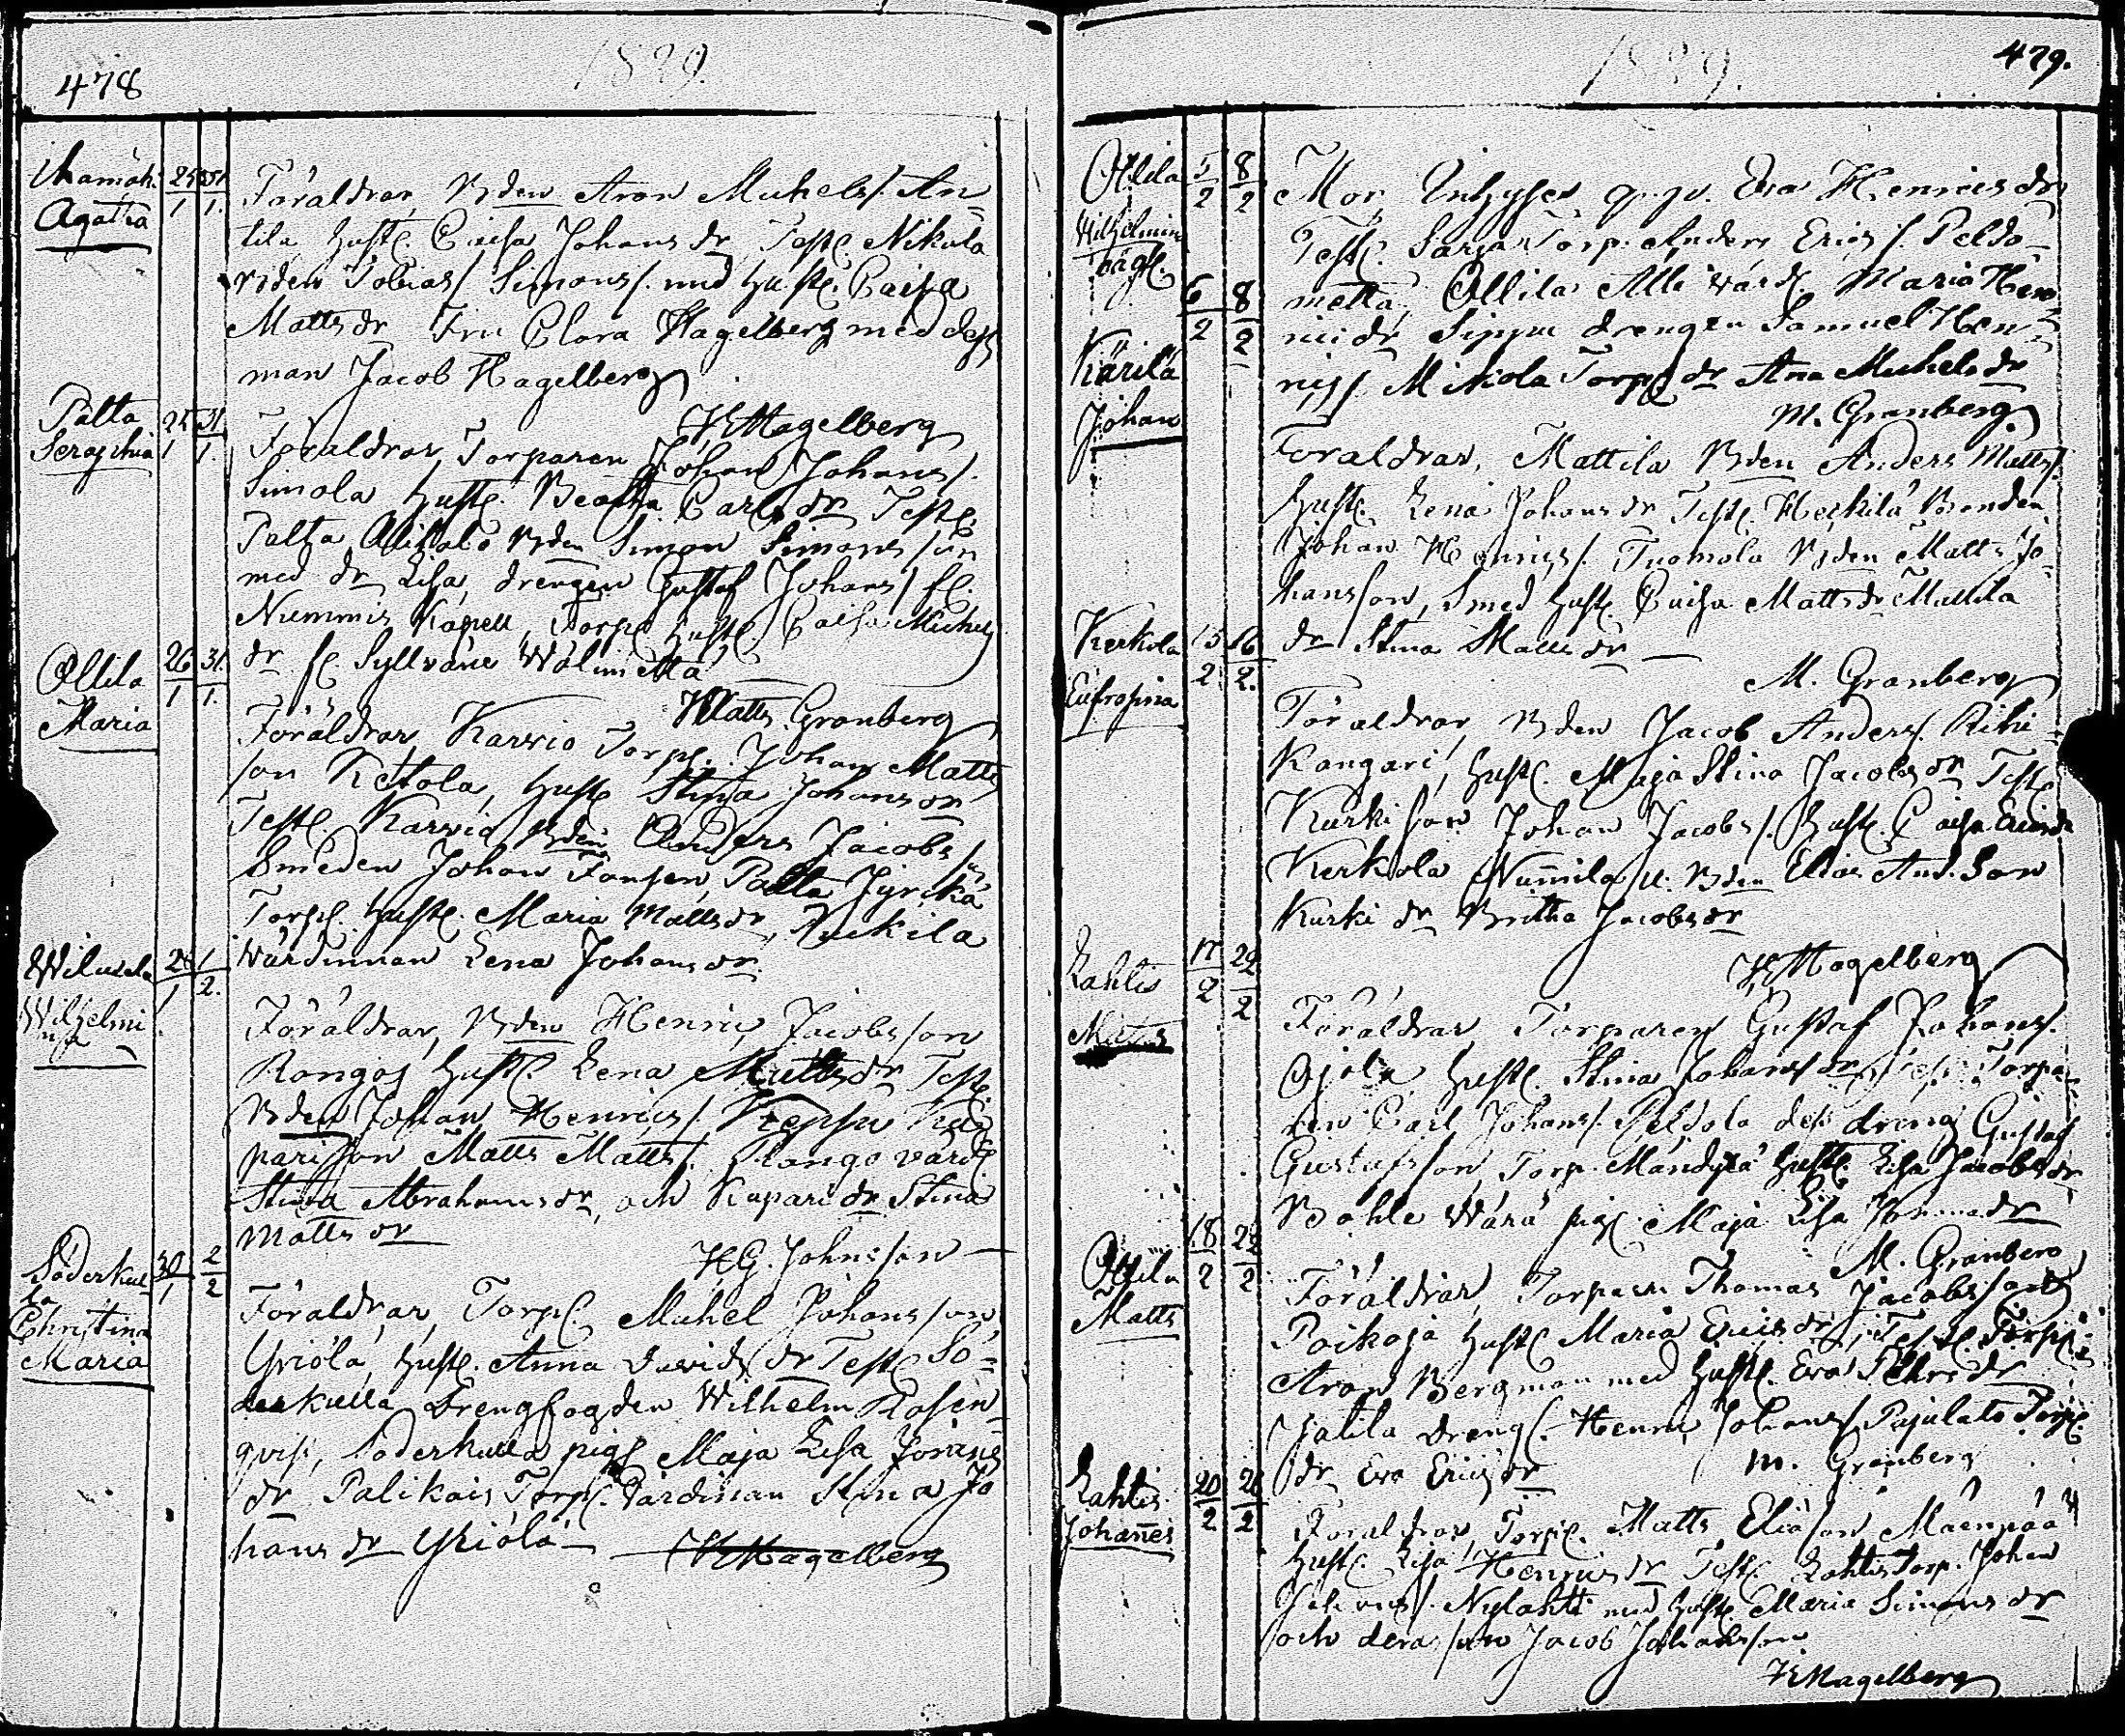 478
1829.
Hamäki 25/1 31/1.
Agatha
Föräldrar, Bden Aron Michels/. An-
tila hust. Caisa Johans dr, Test. Nikula
bden Tobias/ Simons/. med hust. Caisa
Matts dr Fru Clara Hagelberg med dess
man Jacob Hagelberg
HHagelberg
Palta 25/1 31/1.
Seraphia
Föräldrar, Torparen Johan Johans/.
Simola hust. Beatha Carls dr Test.
Palta Bden Simon Simons son
med dr Lisa, drengen Gustaf Johans/ fr.
Nummis Kapell, Torp. hust. Caisa Michels
dr fr. Syllväne Wälimetta
Matts Granberg
Ollila 26/1 31/1.
Maria
Föräldrar, Karvio Torp. Johan Matts
son Ketola, hust. Stina Johans dr
Test. Karvio Bden Anders Jacobs son
Smeden Johan Palta Jyrckä
Torp. hust. Maria Matts dr,
Wärdinnan Lena Johans dr.
1/2.
Wilhelmi
na
Föräldrar, Bden Henric Jacobsson
Rongoj hust. Lena Matts dr Test.
Bden Johan Henrics/.
pari son Matts Matts/. Rongo värd.
Stina Abrahams dr, och Kupari dr Stina
Matts dr
H.G. Johnsson
Söderkul- 30/1 2/2
la
Christina
Maria
Föräldrar, Torp. Michel Johansson
Yriölä, hust. Anna Davids dr Test. Sö-
derkulla Drengfogden Wilhelm Rosen-
qvist, Söderkulla pig. Maja Lisa Jörans
dr Palikais Torp. Värdinnan Stina Jo
hans dr Yriölä
HHagelberg
479.
1829.
Ollila 5/2 8/2
Wilhelmina
oägt.
Mor, Inhyses q.p. Eva Henrics dr
Test. Sarja Torp. Anders Erics/. Peldo-
metta, Ollila Alli värd. Maria Hen-
rics dr Sippu drengen Samuel Hen-
rics/. Mikola Torp. dr Anna Michels dr
M. Granberg
6/2 8/2
Kärilä
Johan
Föräldrar, Mattila Bden Anders Matts/.
hust. Lena Johans dr Test. Heikilä Bonden
Johan Henrics/. Tuomola Bden Matts Jo-
hansson, Smed hust. Caisa Matts dr Mattila
dr Stina Matts dr
M. Granberg
Kerkola 15/2 16/2.
Eufrosina
Föräldrar, Bden Jacob Anders/. Riki
Kangari, hust. Maja Stina Jacobs dr Test.
Kurki son Johan Jacobs/. hust. Caisa Erics dr
Kerkola Bden Elias And. Son
Kurki dr Britha Jacobs dr
HHagelberg
Lahtis 17/2 22/2
Matts
Föräldrar, Torparen Gustaf Johans/.
Ojola, hust. Stina Johans dr, Test. Torpa-
ren Carl Johans/. Peldola dess dreng Gustaf
Gustafsson, Torp. Mändylä hust. Lisa Jacobs dr
Böhle Wärä pig. Maja Lisa dr
M. Granberg
Ollila 18/2 22/2
Matts
Föräldrar, Torparen Thomas Jacobsson
Poikoja hust. Maria Erics dr, Test. Torp.
Aron Bergman med hust. Eva Pehrs dr
Jatila dreng. Henric Johans/. Pajulato Torp.
dr Eva Erics dr
M. Granberg
Lahtis 20/2
Johannes
Föräldrar, Torp. Matts Elia son Mäenpää
hust. Lisa Henrics dr Test. Lahtis Torp. Johan
Nylahti med hust. Maria Simons dr
och deras son Jacob Johansson
HHagelberg